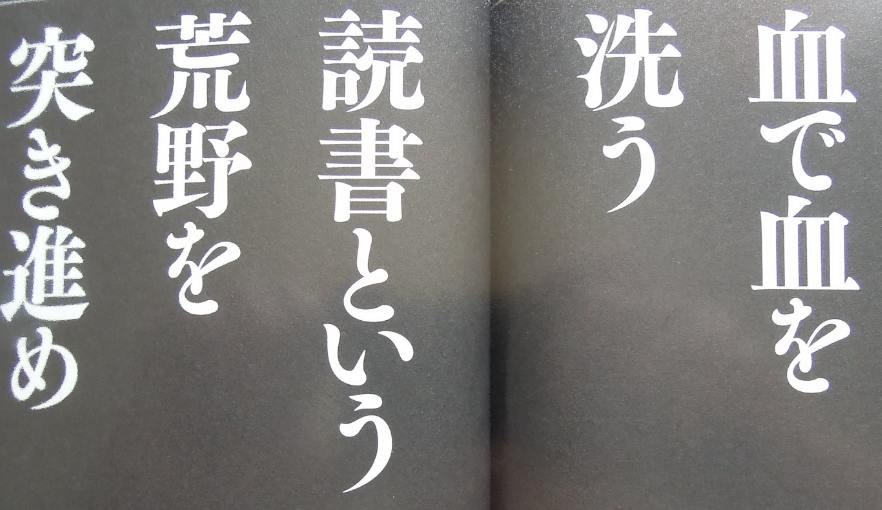 血で血を
洗う
読書という
荒野を
突き進め